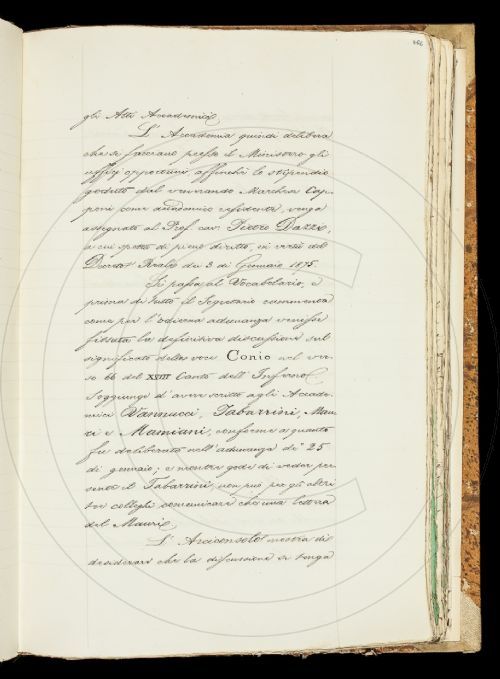 466
gli Atti Accademici.
L'Accademia quindi delibera
che si facciano presso il Ministero gli
uffizj opportuni affinchè lo stipendio
goduto dal venerando Marchese Cap-
poni come accademico residente, venga
assegnato al Prof. cav. Pietro Dazzi,
a cui spetta di pieno diritto, in virtù del
Decreto Reale de' 3 di Gennaio 1875.
Si passa al Vocabolario, e
prima di tutto il Segretario rammenta
come per l'odierna adunanza venisse
fissata la definitiva discussione sul
significato della voce Conio nel ver-
so 66 del XVIII Canto dell'Inferno.
Soggiunge d'avere scritto agli Accade-
mici Vannucci, Tabarrini, Mau-
ri e Mamiani, conforme a quanto
fu deliberato nell'adunanza de' 25
di gennaio; e mentre gode di veder pre-
sente il Tabarrini, non può per gli altri
tre colleghi comunicare che una lettera
del Mauri.
L'Arciconsolo mostra di
desiderare che la discussione si tenga